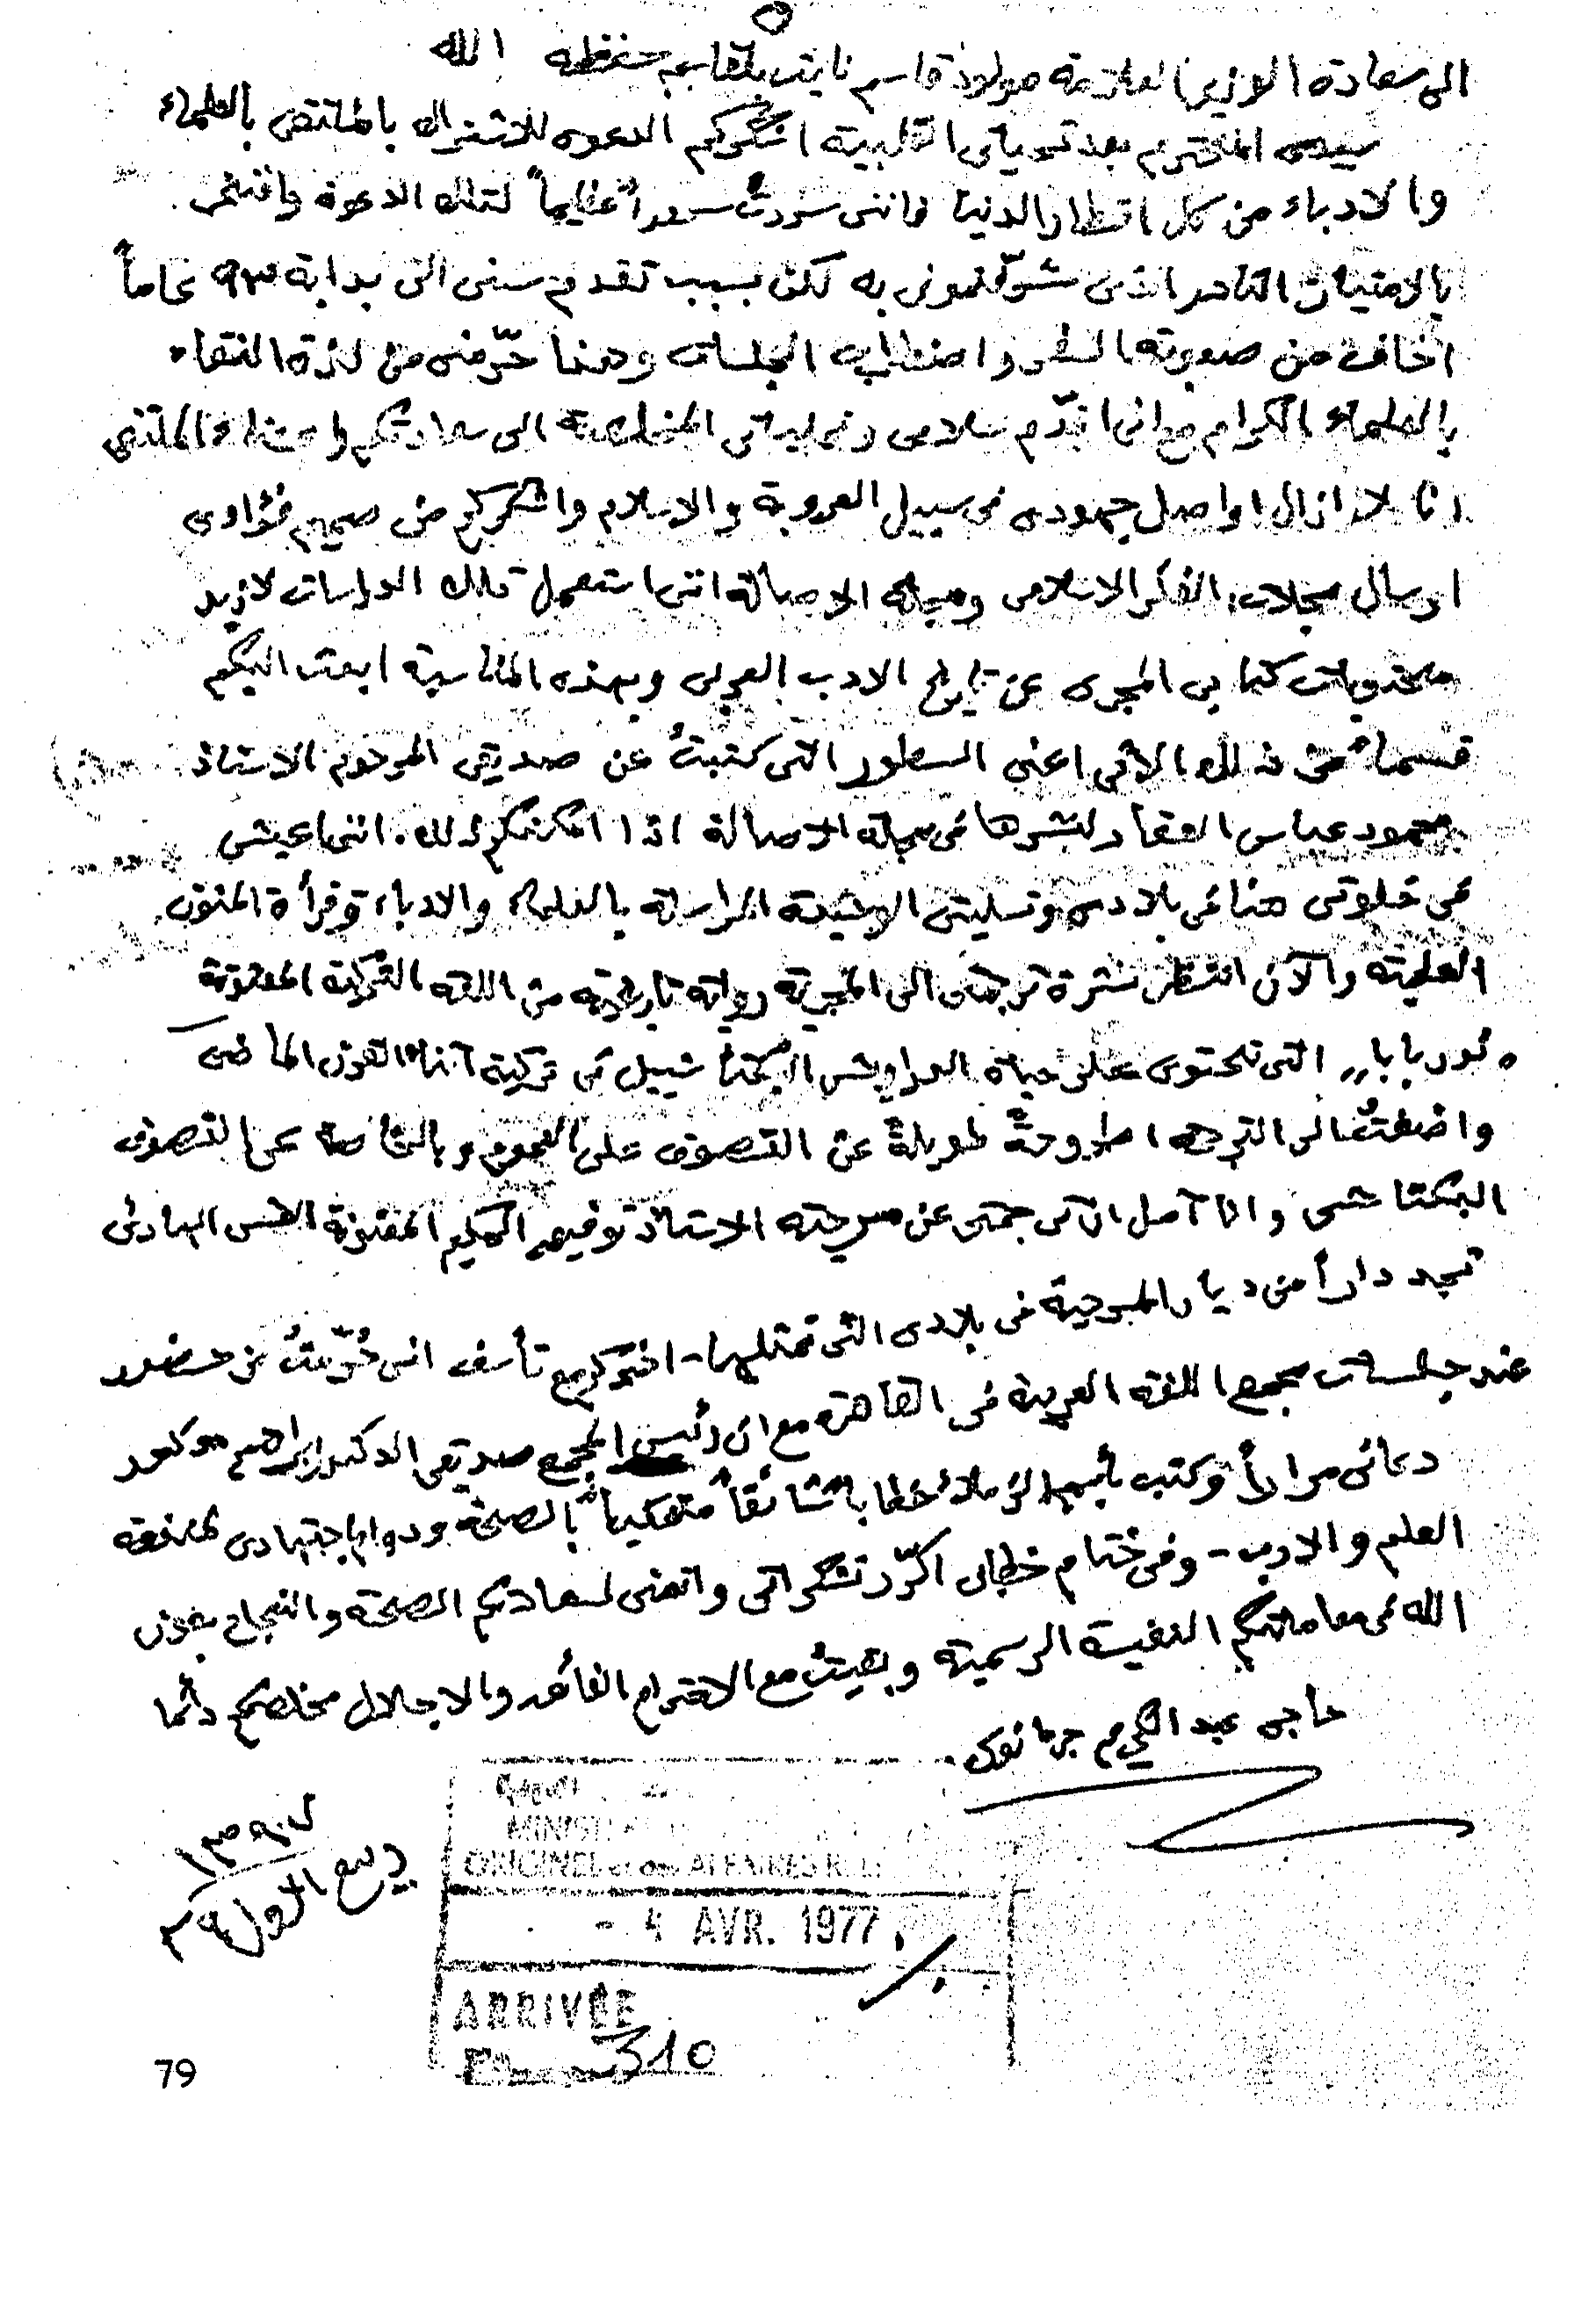 الى سعادة الوزير العلامة مولود قاسم نايت بلقاسم حفظه الله
سيدى المحترم بعد تحياتى القلبية اشكركم الدعوه للاشتراك بالملتقى بالعلماء
والادباء من كل اقطار الدنيا فاننى سررتُ سروراً عظيماً لتلك الدعوة وافتخر
بالامتياز النادر الذى شرّفتمونى به لكن بسبب تقدم سنى الى بداية ٩٣ عاماً
اخاف من صعوبة السفر واضطراب الجلسات وهذا حرّمنى من لذة التقاء
بالعلماء الكرام مع انى اقدّم سلامى وتحياتى المخلصة الى سعادتكم واعضاء الملتقى
انا لا ازال اواصل جهودى فى سبيل العروبة والاسلام واشكركم من صميم فؤادى
ارسال مجلات الفكر الاسلامى ومجلة الاصالة اننى استعمل تلك الدراسات لازيد
محتويات كتابى المجرى عن تاريخ الادب العربى وبهذه المناسبة ابعث اليكم
قسماً من ذلك الآتى اعنى السطور التى كتبتُ عن صديقى المرحوم الاستاذ
محمود عباس العقاد لنشرها فى مجلة الاصالة اذا امكنكم ذلك. اننى اعيش
فى خلوتى هنا فى بلادى وتسليتى الوحيدة المراسلة بالعلماء والادباء وقرأة المتون
العلمية والآن انتظر نشرة ترجمتى الى المجرية رواية تاريخية من اللغة التركية المعنونة
„نور بابا„ التى تحتوى على حياة الدراويش البكتاشيين فى تركية اثناء القرن الماضى
واضفتُ الى الترجمة اطروحةً طويلةً عن التصوف على العموم وبالخاصة على التصوف
البكتاشى وانا آمل ان ترجمتى عن مسرحية الاستاذ توفيق الحكيم المعنونة الحسن البهادئ
تجد داراً من ديار المسرحية فى بلادى التى تمثلها - اخبركم مع تأسف انى حُرّمتُ من حضور
عند جلسات مجمع اللغة العربية فى القاهرة مع ان رئيس المجمع صديقى الدكتور ابراهيم مدكور
دعانى مراراً وكتب باسم الزملاء خطاباً شائقاً بالصحة ودوام اجتهادى لمنفعة
العلم والادب - وفى ختام خطابى اكرّر تشكراتى واتمنى لسعادتكم الصحة والنجاح بعون
الله فى معاملاتكم النفيسة الرسمية وبقيتُ مع الاحترام الفائق والاجلال مخلصكم دائما
حاجى عبد الكريم جرمانوس
١٣٩٧
ربيع الاول ٢٩
MINIST
ORIGINEL et des AFFAIRES REL
- 4 AVR. 1977
ARRIVÉE
310
79